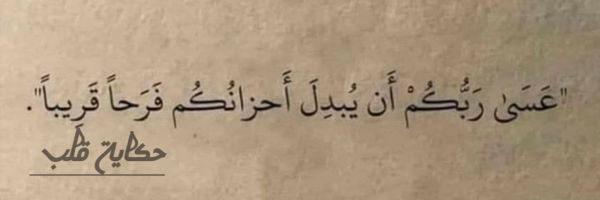 "عَسَىٰ رَبُّكُمْ أَن يُبدِلَ أَحزانُكُم فَرَحاً قَرِيباً".
حكاية قلب